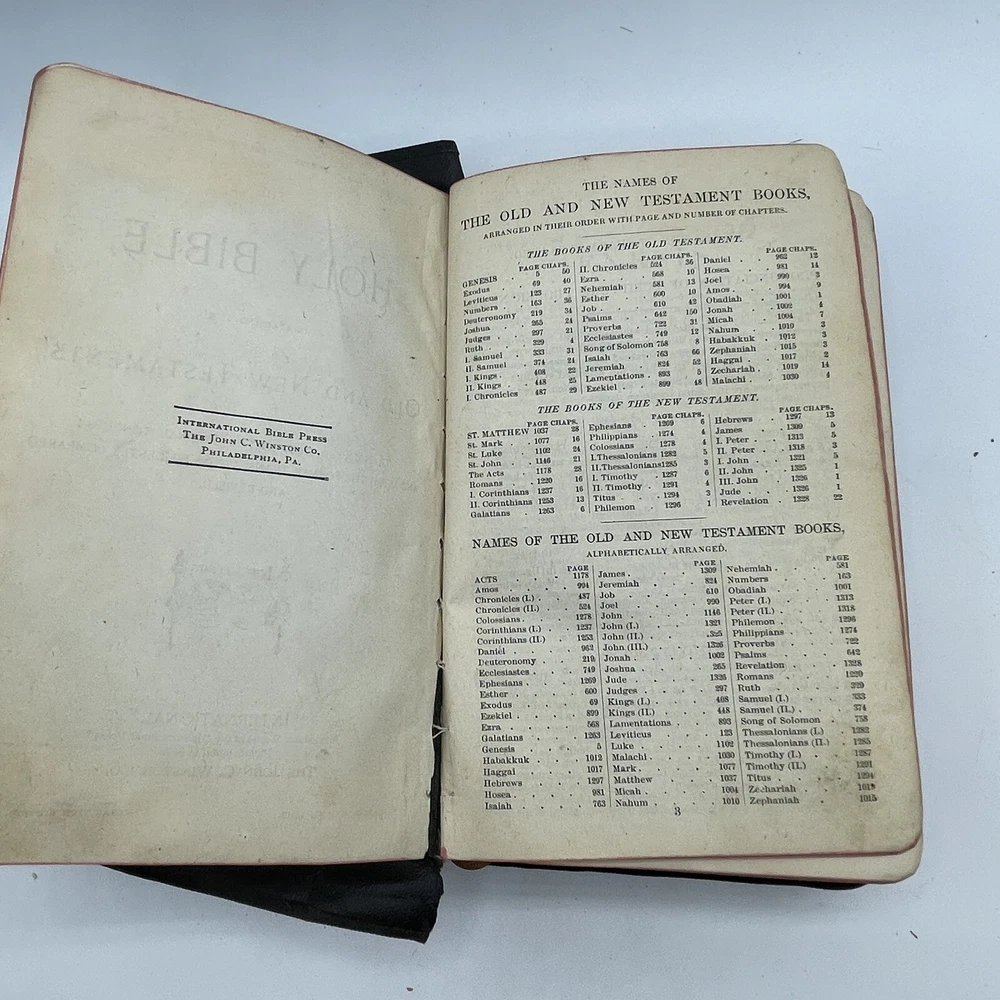 INTERNATIONAL BIBLE PRESS
THE JOHN C. WINSTON CO.
PHILADELPHIA, PA.
THE NAMES OF
THE OLD AND NEW TESTAMENT BOOKS,
ARRANGED IN THEIR ORDER WITH PAGE AND NUMBER OF CHAPTERS.
THE BOOKS OF THE OLD TESTAMENT.
PAGE CHAPS.
GENESIS . 5 50
Exodus . 69 40
Leviticus . 123 27
Numbers . 163 36
Deuteronomy 219 34
Joshua . 265 24
Judges . 297 21
Ruth . 329 4
I. Samuel . 333 31
II. Samuel . 374 24
I. Kings . 408 22
II. Kings . 448 25
I. Chronicles 487 29
PAGE CHAPS.
II. Chronicles 524 36
Ezra . 568 10
Nehemiah . 581 13
Esther . 600 10
Job . 610 42
Psalms . 642 150
Proverbs . 722 31
Ecclesiastes . 749 12
Song of Solomon 758 8
Isaiah . 763 66
Jeremiah . 824 52
Lamentations . 893 5
Ezekiel . 899 48
PAGE CHAPS.
Daniel . 962 12
Hosea . 981 14
Joel . 990 3
Amos . 994 9
Obadiah . 1001 1
Jonah . 1002 4
Micah . 1004 7
Nahum . 1010 3
Habakkuk . 1012 3
Zephaniah . 1015 3
Haggai . 1017 2
Zechariah . 1019 14
Malachi . 1030 4
THE BOOKS OF THE NEW TESTAMENT.
PAGE CHAPS.
ST. MATTHEW 1037 28
St. Mark . 1077 16
St. Luke . 1102 24
St. John . 1146 21
The Acts . 1178 28
Romans . 1220 16
I. Corinthians 1237 16
II. Corinthians 1253 13
Galatians . 1263 6
PAGE CHAPS.
Ephesians . 1269 6
Philippians . 1274 4
Colossians . 1278 4
I. Thessalonians 1282 5
II. Thessalonians 1285 3
I. Timothy . 1287 6
II. Timothy . 1291 4
Titus . 1294 3
Philemon . 1296 1
PAGE CHAPS.
Hebrews . 1297 13
James . 1309 5
I. Peter . 1313 5
II. Peter . 1318 3
I. John . 1321 5
II. John . 1325 1
III. John . 1326 1
Jude . 1326 1
Revelation . 1328 22
NAMES OF THE OLD AND NEW TESTAMENT BOOKS,
ALPHABETICALLY ARRANGED.
PAGE
ACTS . 1178
Amos . 994
Chronicles (I.) . 487
Chronicles (II.) . 524
Colossians . 1278
Corinthians (I.) . 1237
Corinthians (II.) . 1253
Daniel . 962
Deuteronomy . 219
Ecclesiastes . 749
Ephesians . 1269
Esther . 600
Exodus . 69
Ezekiel . 899
Ezra . 568
Galatians . 1263
Genesis . 5
Habakkuk . 1012
Haggai . 1017
Hebrews . 1297
Hosea . 981
Isaiah . 763
PAGE
James . 1309
Jeremiah . 824
Job . 610
Joel . 990
John . 1146
John (I.) . 1321
John (II.) .
John (III.) . 1326
Jonah . 1002
Joshua . 265
Jude . 1326
Judges . 297
Kings (I.) . 408
Kings (II.) . 448
Lamentations . 893
Leviticus . 123
Luke . 1102
Malachi . 1030
Mark . 1077
Matthew . 1037
Micah . 1004
Nahum . 1010
PAGE
Nehemiah . 581
Numbers . 163
Obadiah . 1001
Peter (I.) . 1313
Peter (II.) . 1318
Philemon . 1296
Philippians . 1274
Proverbs . 722
Psalms . 642
Revelation . 1328
Romans . 1220
Ruth . 329
Samuel (I.) . 333
Samuel (II.) . 374
Song of Solomon . 758
Thessalonians (I.) . 1282
Thessalonians (II.) . 1285
Timothy (I.) . 1287
Timothy (II.) . 1291
Titus . 1294
Zechariah . 1019
Zephaniah . 1015
3